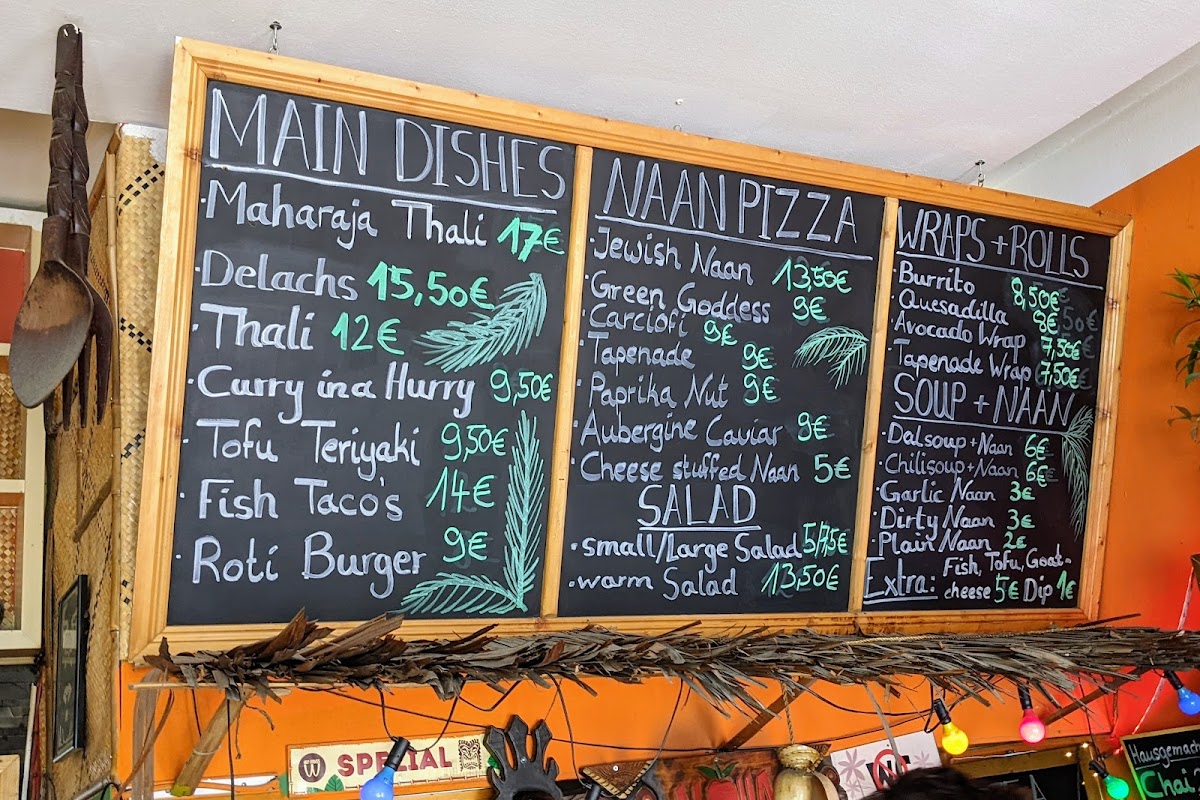 MAIN DISHES
· Maharaja Thali 17€
· Delachs 15,50€
· Thali 12€
· Curry in a Hurry 9,50€
· Tofu Teriyaki 9,50€
· Fish Taco's 14€
· Roti Burger 9€
NAAN PIZZA
· Jewish Naan 13,50€
· Green Goddess 9€
· Carciofi 9€
· Tapenade 9€
· Paprika Nut 9€
· Aubergine Caviar 9€
· Cheese stuffed Naan 5€
SALAD
· small/Large Salad 5/7,5€
· warm Salad 13,50€
WRAPS + ROLLS
· Burrito 8,50€
· Quesadilla 8€
· Avocado Wrap 7,50€
· Tapenade Wrap 7,50€
SOUP + NAAN
· Dalsoup + Naan 6€
· Chilisoup + Naan 6€
· Garlic Naan 3€
· Dirty Naan 3€
· Plain Naan 2€
Extra: Fish, Tofu, Goat-
cheese 5€ Dip 1€
SPECIAL
Hausgemacht
Chai